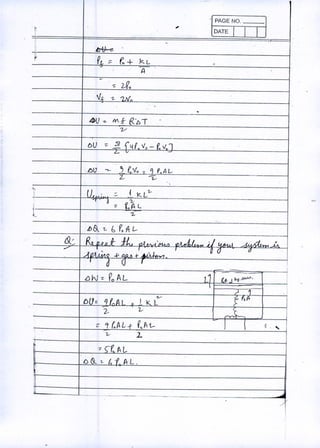 PAGE NO.
DATE
P_f = P₀ + KL/A
= 2P₀
V_f = 2V₀
ΔU = m f/2 RΔT
ΔU = 3/2 [4P₀V₀ - P₀V₀]
ΔU = 9/2 P₀V₀ = 9/2 P₀AL
U_spring = 1/2 KL²
= P₀AL/2
ΔQ = 6 P₀AL
Q. Repeat the previous problem if your system is
spring + gas + piston.
ΔW = P₀AL
ΔU = 9P₀AL/2 + 1/2 KL²
= 9P₀AL/2 + P₀AL/2
= 5P₀AL
ΔQ = 6P₀AL.